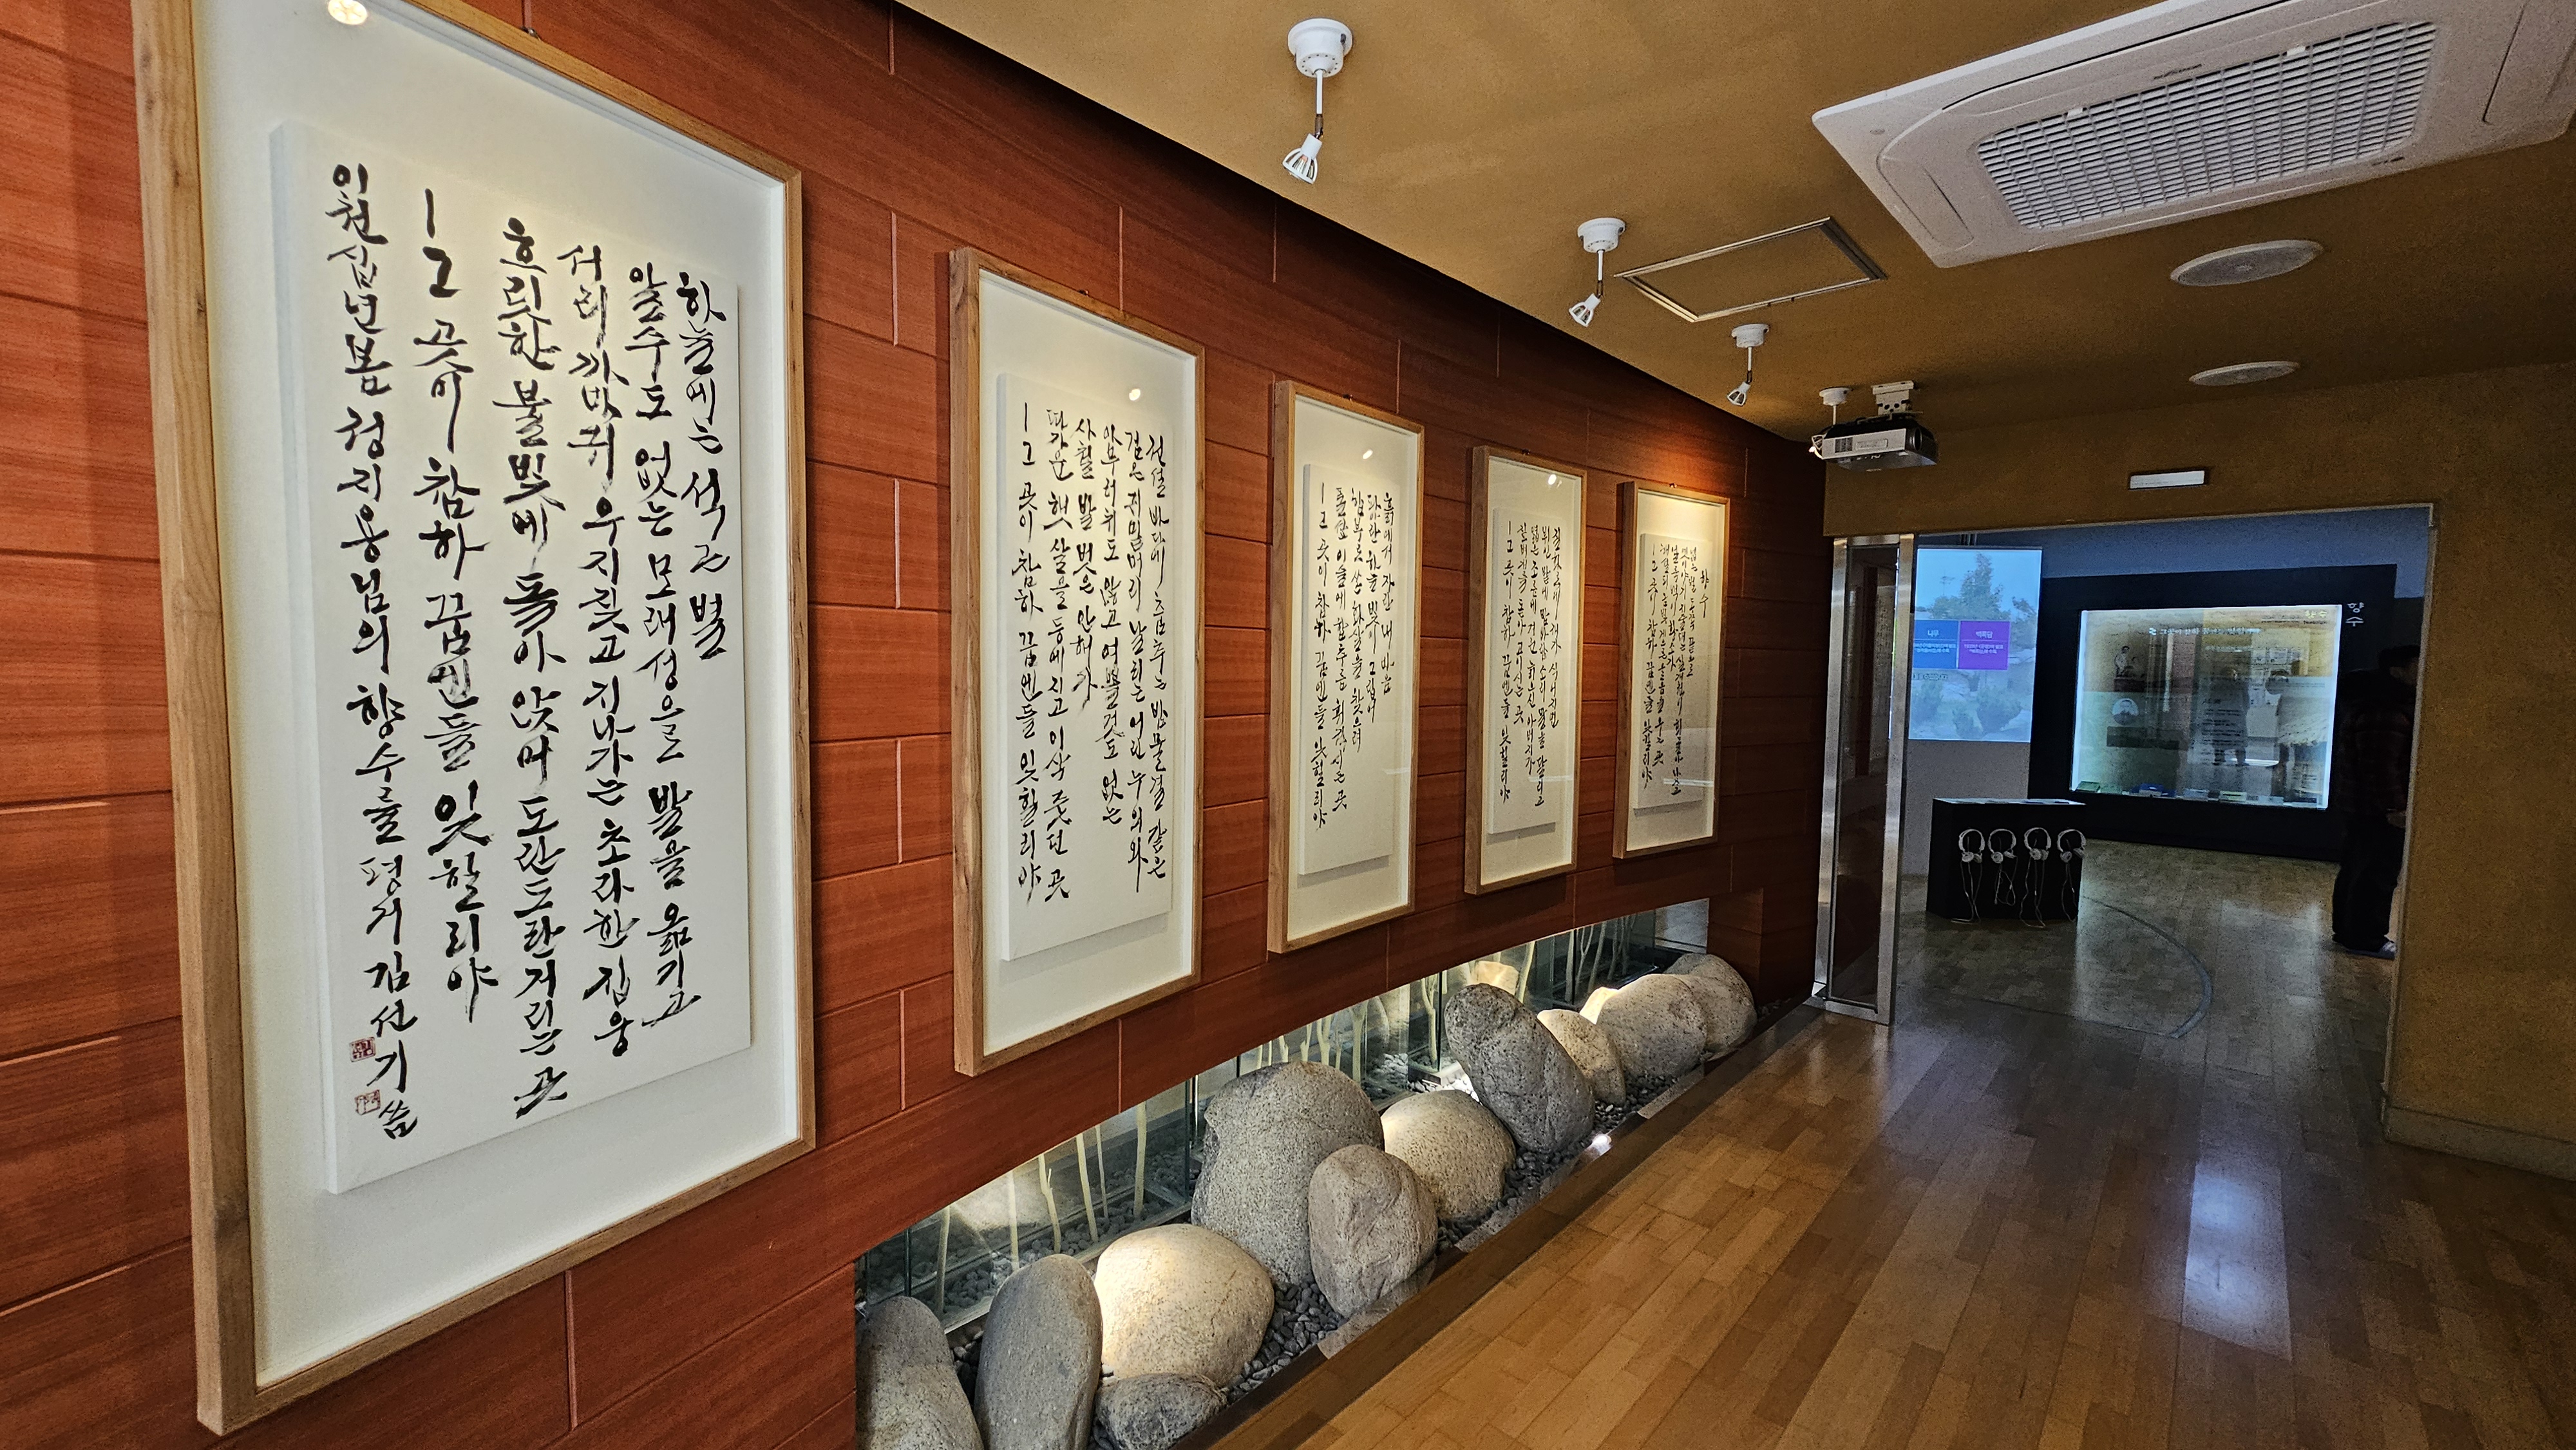 향수
넓은 벌 동쪽 끝으로
옛이야기 지줄대는 실개천이 휘돌아 나가고
얼룩백이 황소가
해설피 금빛 게으른 울음을 우는 곳
ㅣ그 곳이 참하 꿈엔들 잊힐리야
질화로에 재가 식어지면
뷔인 밭에 밤바람소리 말을 달리고
엷은 조름에 겨운 늙으신 아버지가
짚벼개를 돋아 고이시는 곳
ㅣ그 곳이 참하 꿈엔들 잊힐리야
흙에서 자란 내 마음
파란 하늘 빛이 그립어
함부로 쏜 화살을 찾으려
풀섶 이슬에 함추름 휘적시든 곳
ㅣ그 곳이 참하 꿈엔들 잊힐리야
전설 바다에 춤추는 밤물결 같은
검은 귀밑머리 날리는 어린 누의와
아무러치도 않고 여쁠것도 없는
사철 발 벗은 안해가
따가운 햇살을 등에 지고 이삭 줏던 곳
ㅣ그 곳이 참하 꿈엔들 잊힐리야
하늘에는 석근 별
알수도 없는 모래성으로 발을 옮기고
서리 까마귀 우지짖고 지나가는 초라한 집웅
흐릿한 불빛에 돌아 앉어 도란도란거리는 곳
ㅣ그 곳이 참하 꿈엔들 잊힐리야
이천십년봄 정지용님의 향수를 평거 김선기 씀
나무
백록담
향수